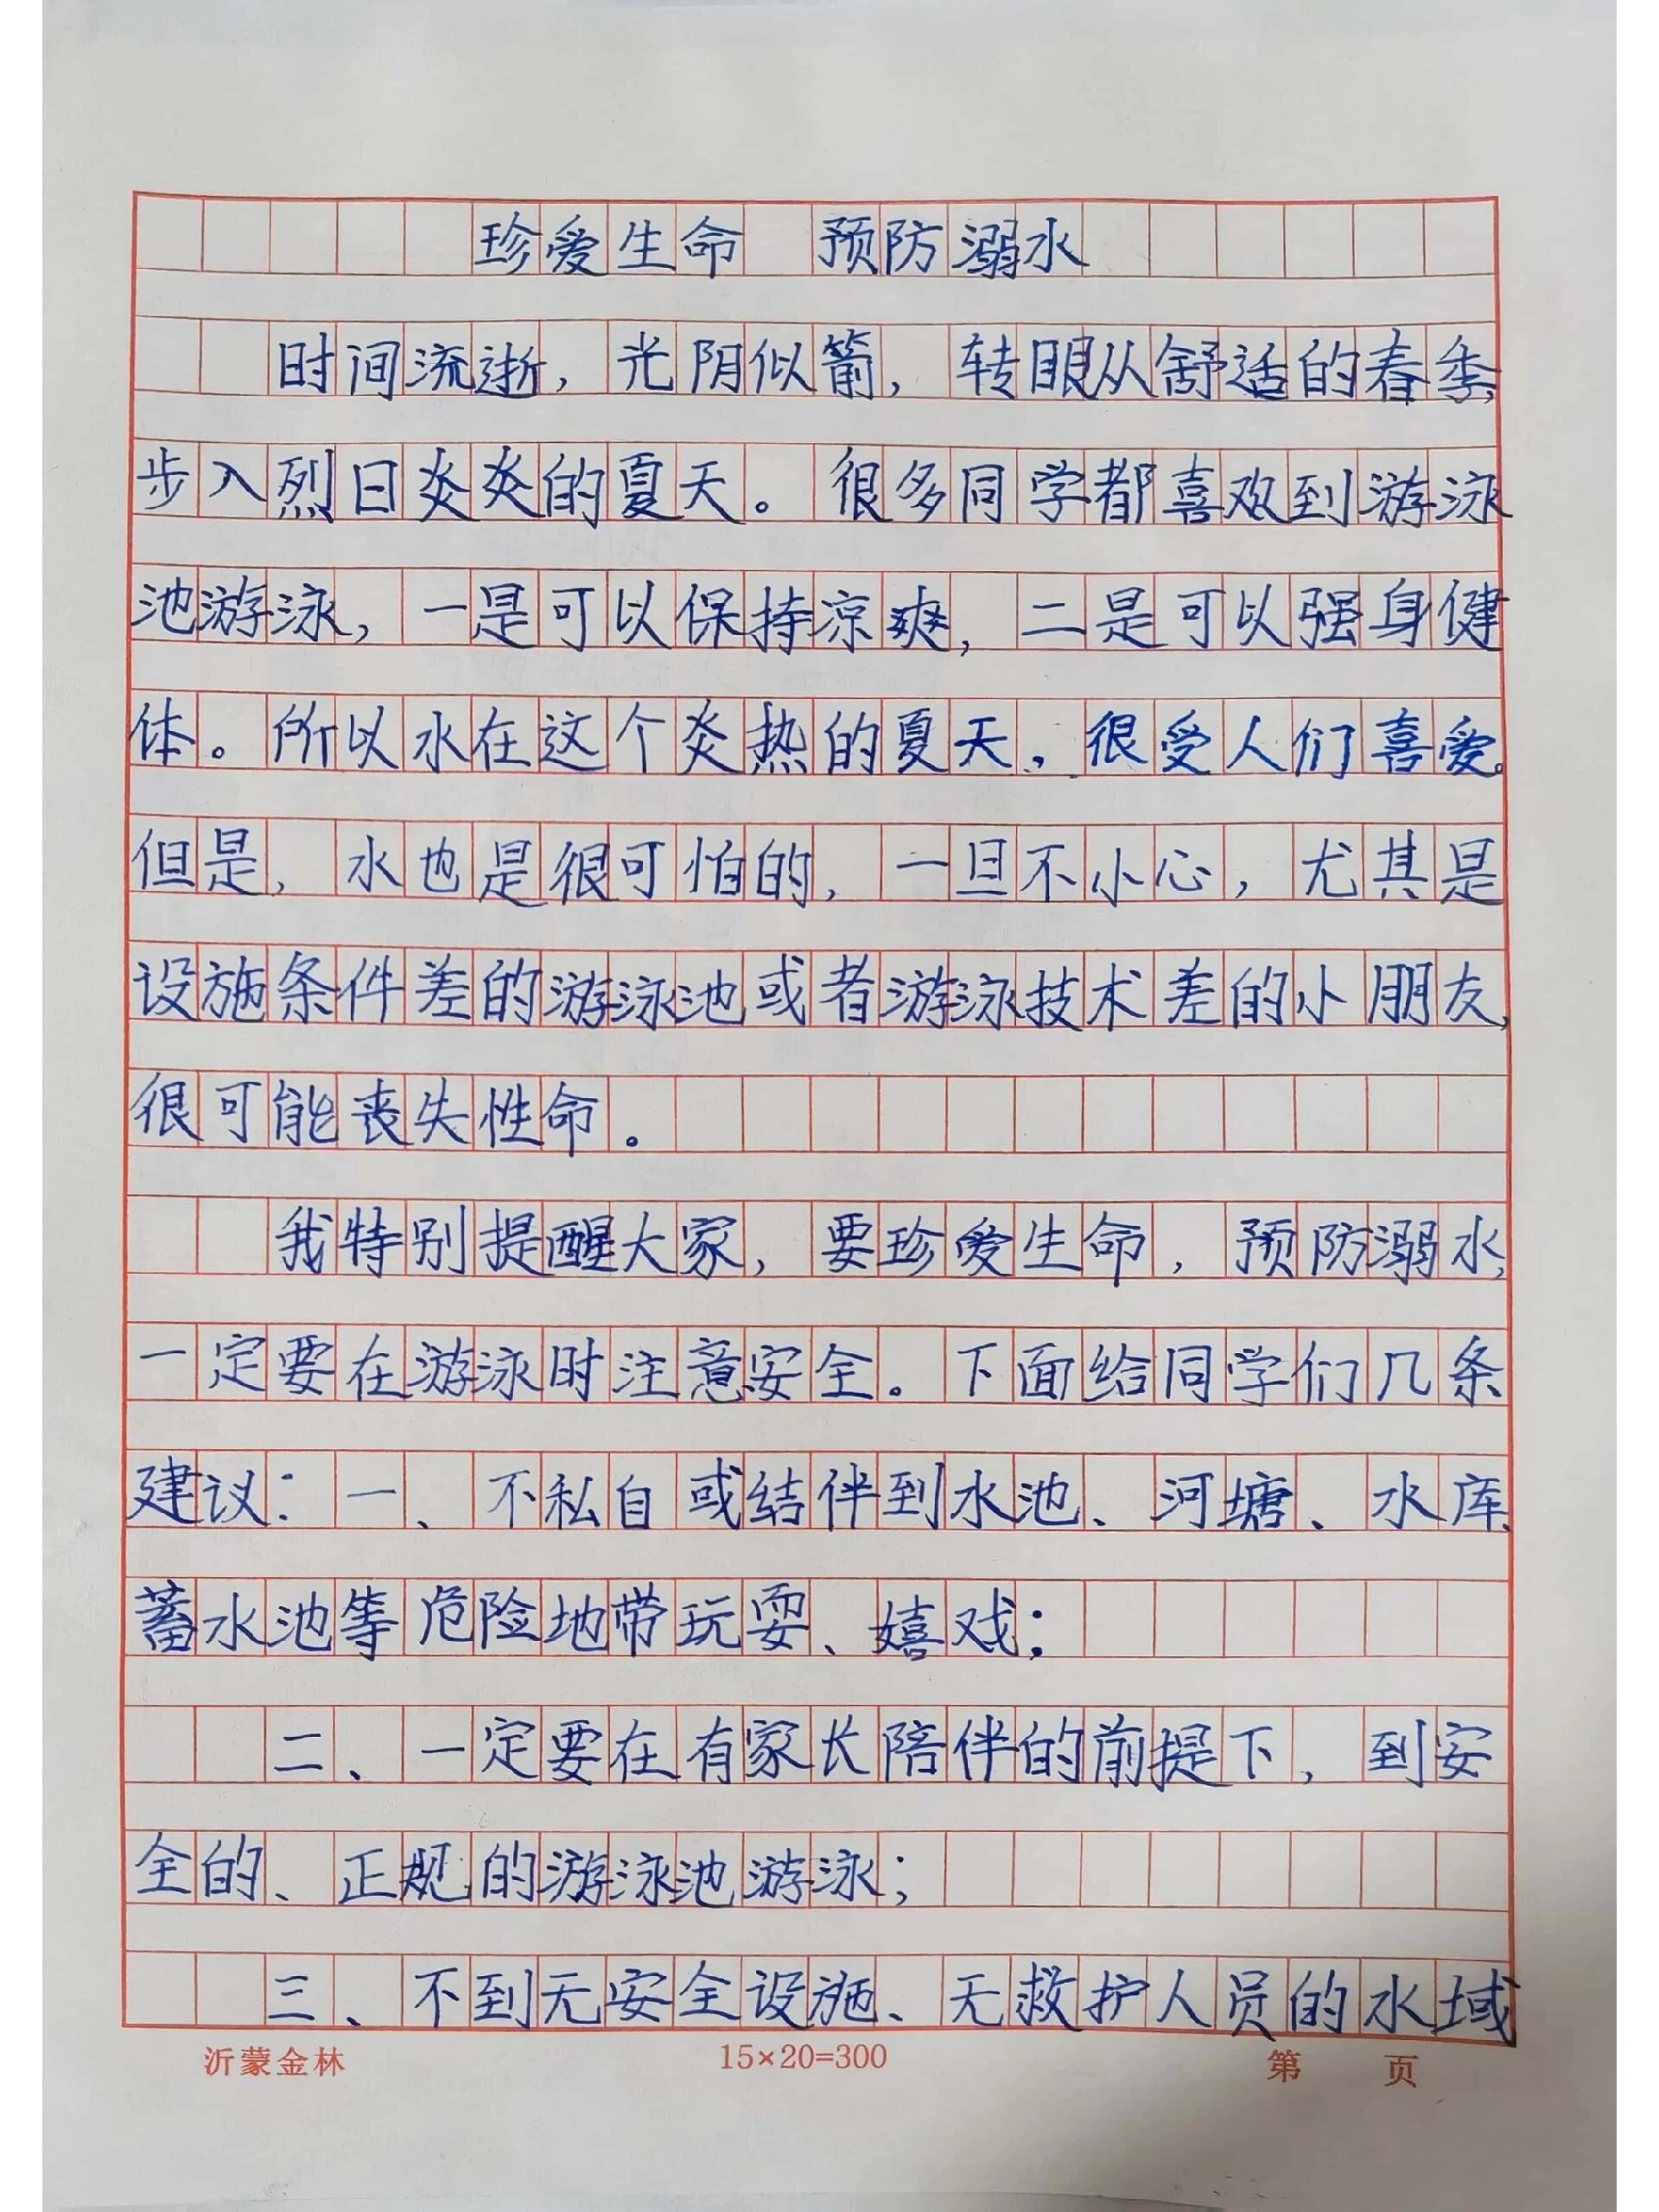 珍爱生命 预防溺水
时间流逝，光阴似箭，转眼从舒适的春季，
步入烈日炎炎的夏天。很多同学都喜欢到游泳
池游泳，一是可以保持凉爽，二是可以强身健
体。所以水在这个炎热的夏天，很受人们喜爱。
但是，水也是很可怕的，一旦不小心，尤其是
设施条件差的游泳池或者游泳技术差的小朋友，
很可能丧失性命。
我特别提醒大家，要珍爱生命，预防溺水，
一定要在游泳时注意安全。下面给同学们几条
建议：一、不私自或结伴到水池、河塘、水库、
蓄水池等危险地带玩耍、嬉戏；
二、一定要在有家长陪伴的前提下，到安
全的、正规的游泳池游泳；
三、不到无安全设施、无救护人员的水域
沂蒙金林 15×20=300 第 页